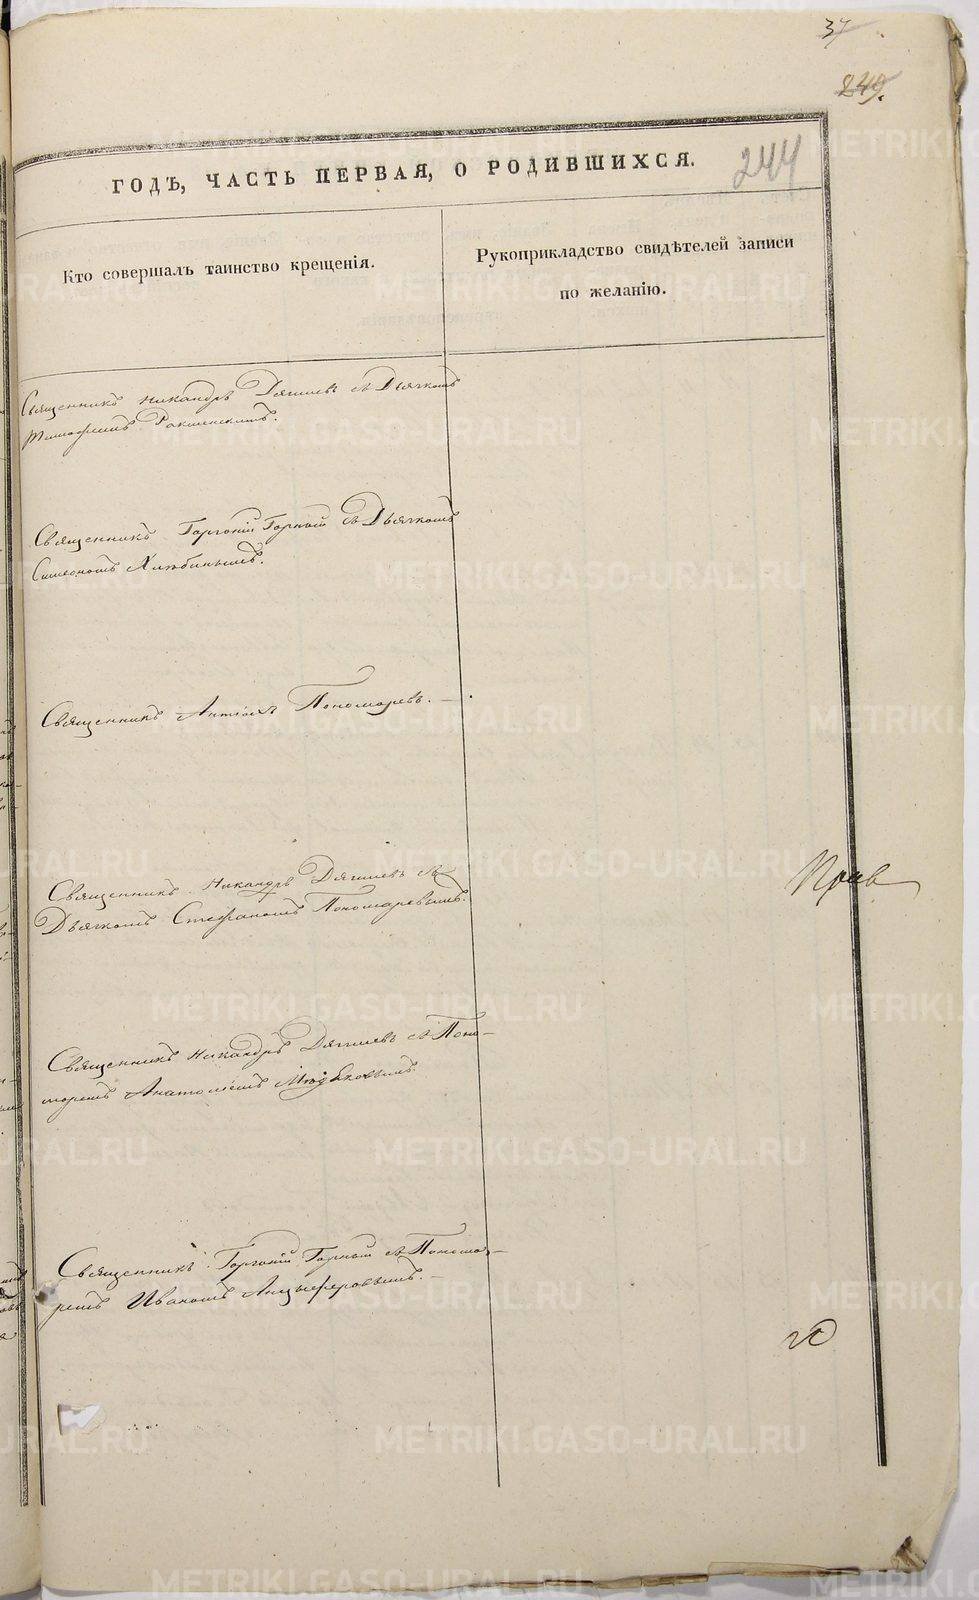 37
249.
244
ГОДЪ, ЧАСТЬ ПЕРВАЯ, О РОДИВШИХСЯ.
Кто совершалъ таинство крещенія.
Рукоприкладство свидѣтелей записи
по желанію.
Священникъ Никандръ Дягилевъ съ Дьячкомъ
Тимофеемъ
Священникъ Горгоній Горный съ Дьячкомъ
Симеономъ Хлюбинымъ.
Священникъ Антіохъ Пономаревъ.
Священникъ Никандръ Дягилевъ съ
Дьячкомъ Стефаномъ Пономаревымъ.
Священникъ Никандръ Дягилевъ съ Поно-
маремъ Анатоліемъ
Священникъ Горгоній Горный съ Понома-
ремъ Иваномъ Анцыферовымъ.
METRIKI.GASO-URAL.RU